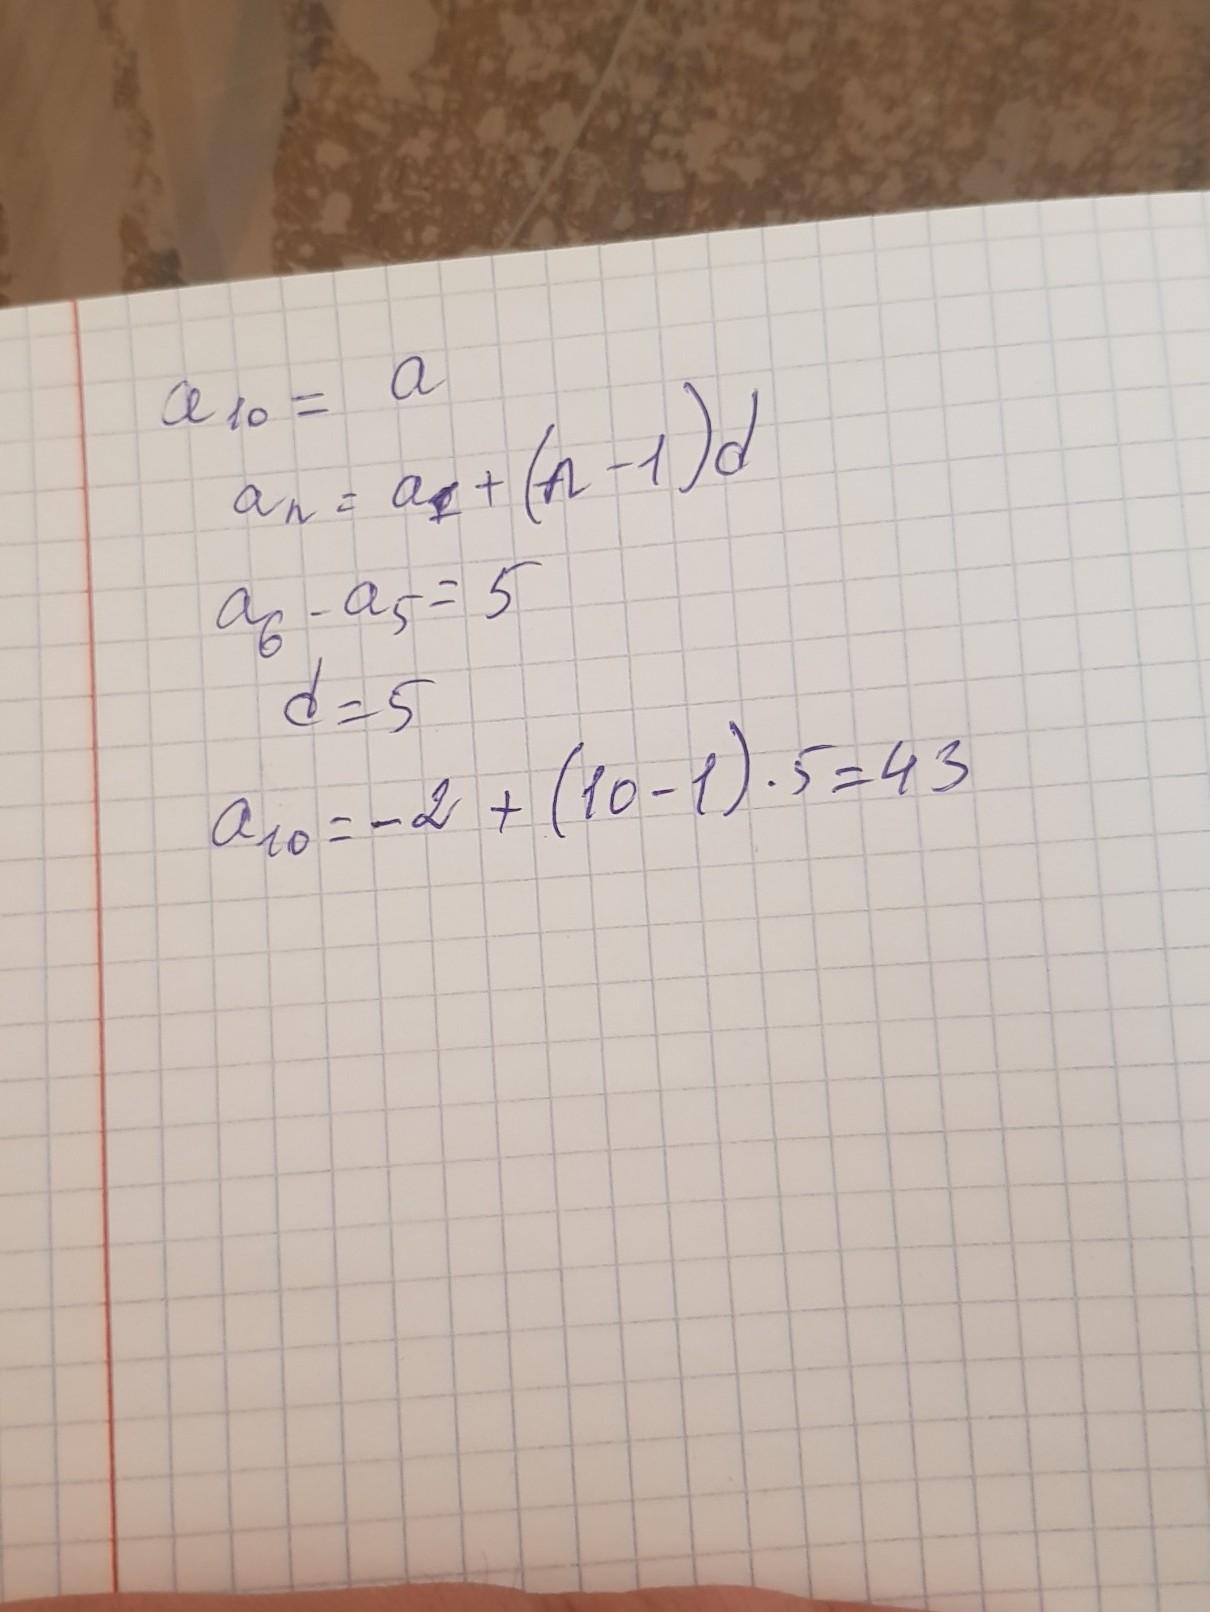 a₁₀ = a
aₙ = a₁ + (n - 1)d
a₆ - a₅ = 5
d = 5
a₁₀ = -2 + (10 - 1) · 5 = 43